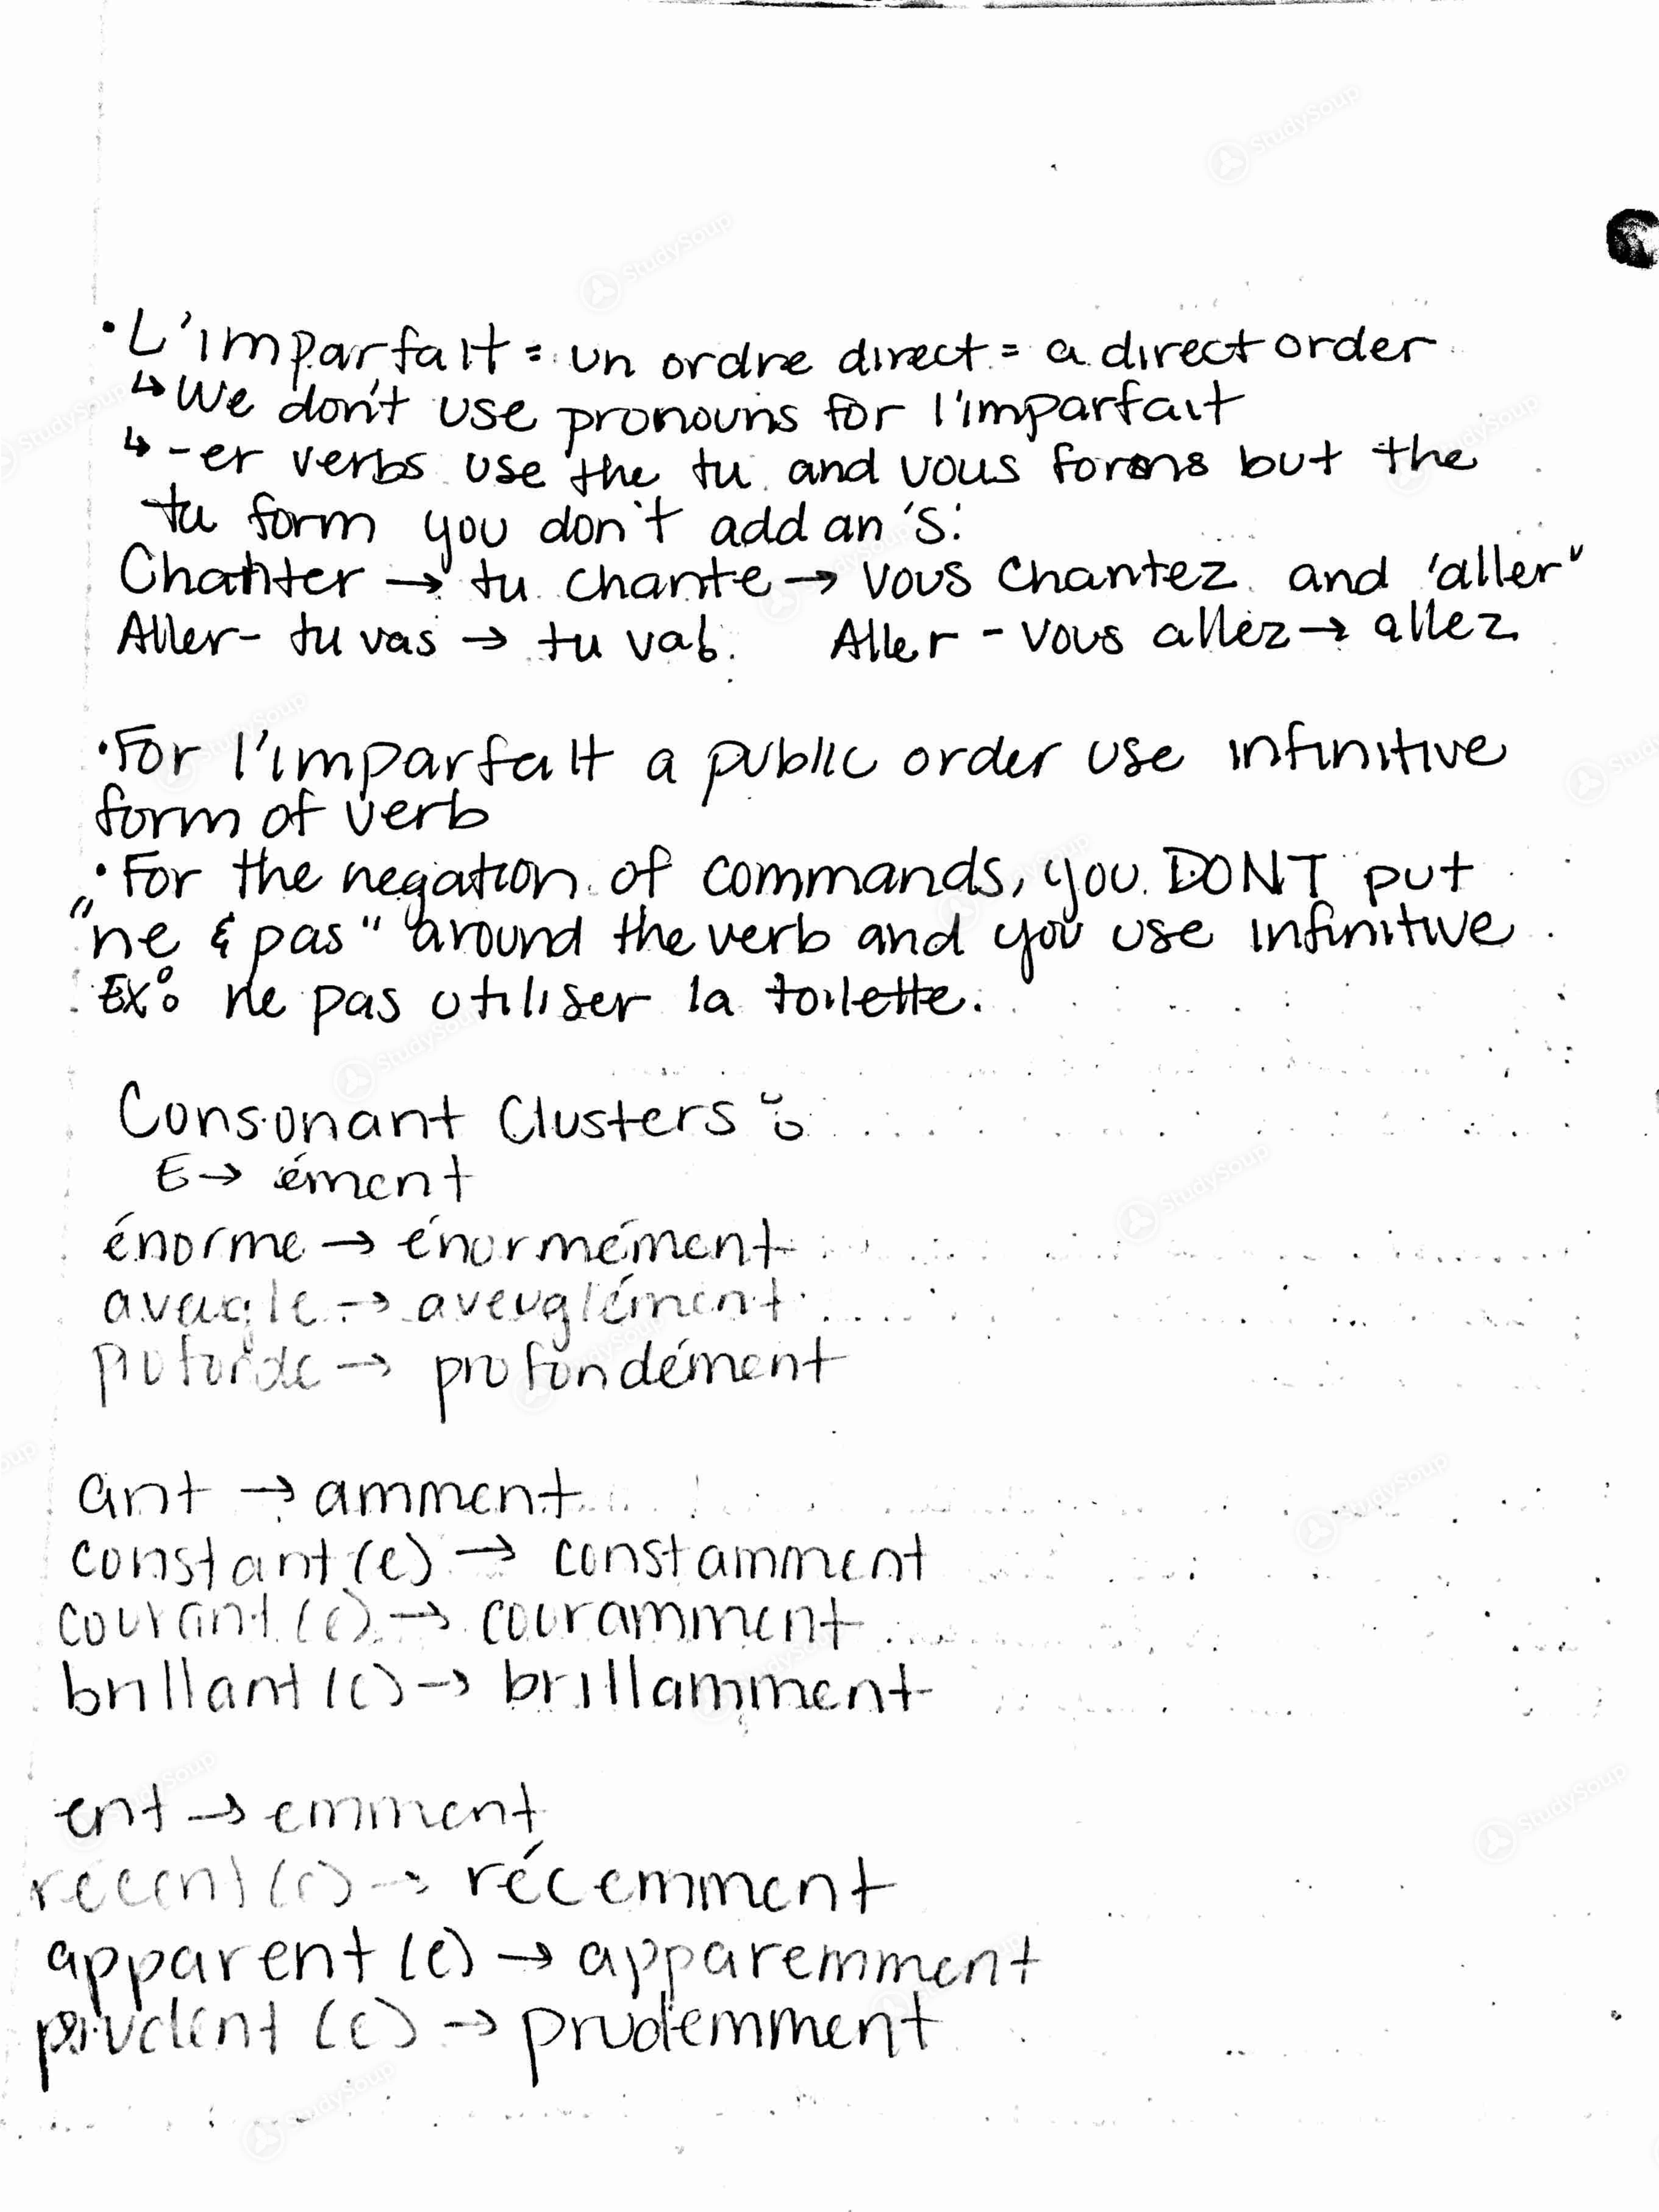 • L'imparfait = un ordre direct = a direct order
↳ We don't use pronouns for l'imparfait
↳ -er verbs use the tu and vous forms but the
tu form you don't add an 's'.
Chanter → tu chante → vous chantez and 'aller"
Aller - tu vas → tu va. Aller - vous allez → allez
• For l'imparfait a public order use infinitive
form of verb
• For the negation of commands, you DONT put
"ne & pas" around the verb and you use infinitive.
Ex: ne pas utiliser la toilette.
Consonant Clusters:
E → ément
énorme → énormément
aveugle → aveuglément
→ profondément
ant → amment
constant(e) → constamment
courant(e) → couramment
brillant(e) → brillamment
ent → emment
récent(e) → récemment
apparent(e) → apparemment
prudent(e) → prudemment
StudySoup